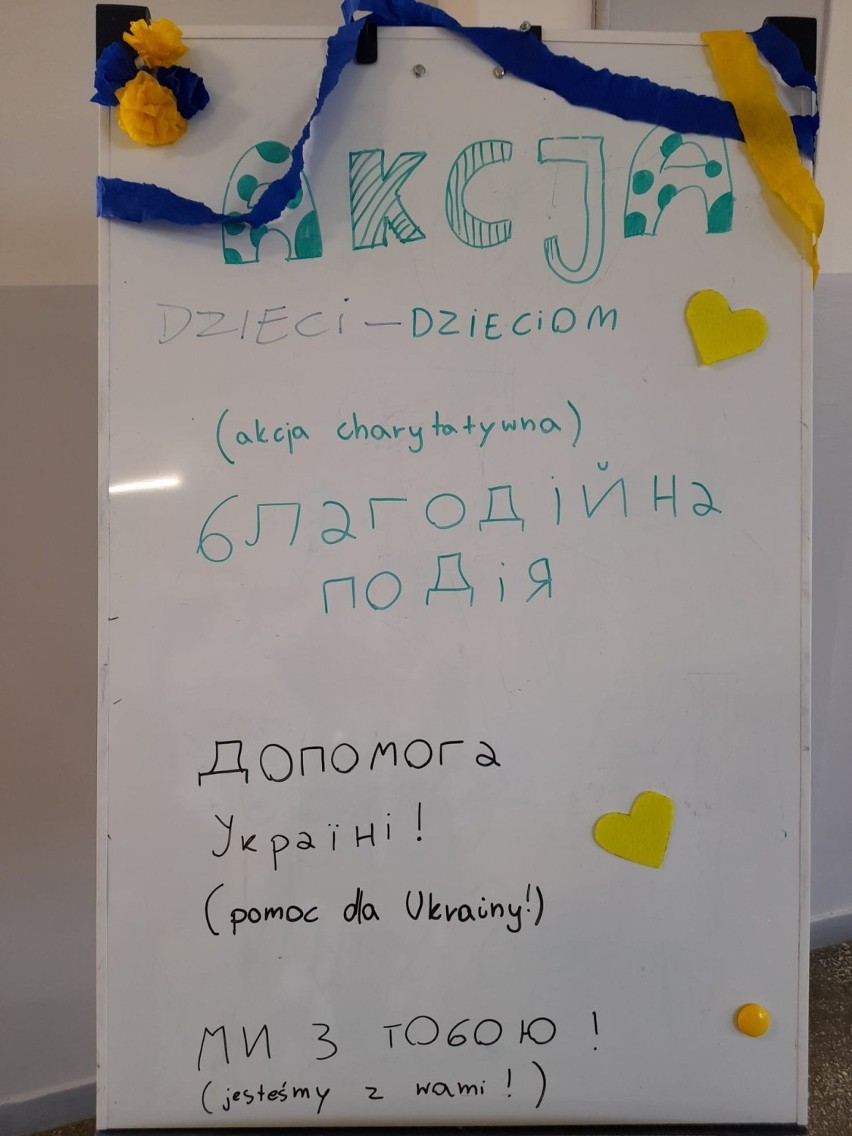 AKCJA
DZIECI – DZIECIOM
(akcja charytatywna)
благодійна
подія
Допомога
Україні!
(pomoc dla Ukrainy!)
МИ З ТОБОЮ!
(jesteśmy z wami!)